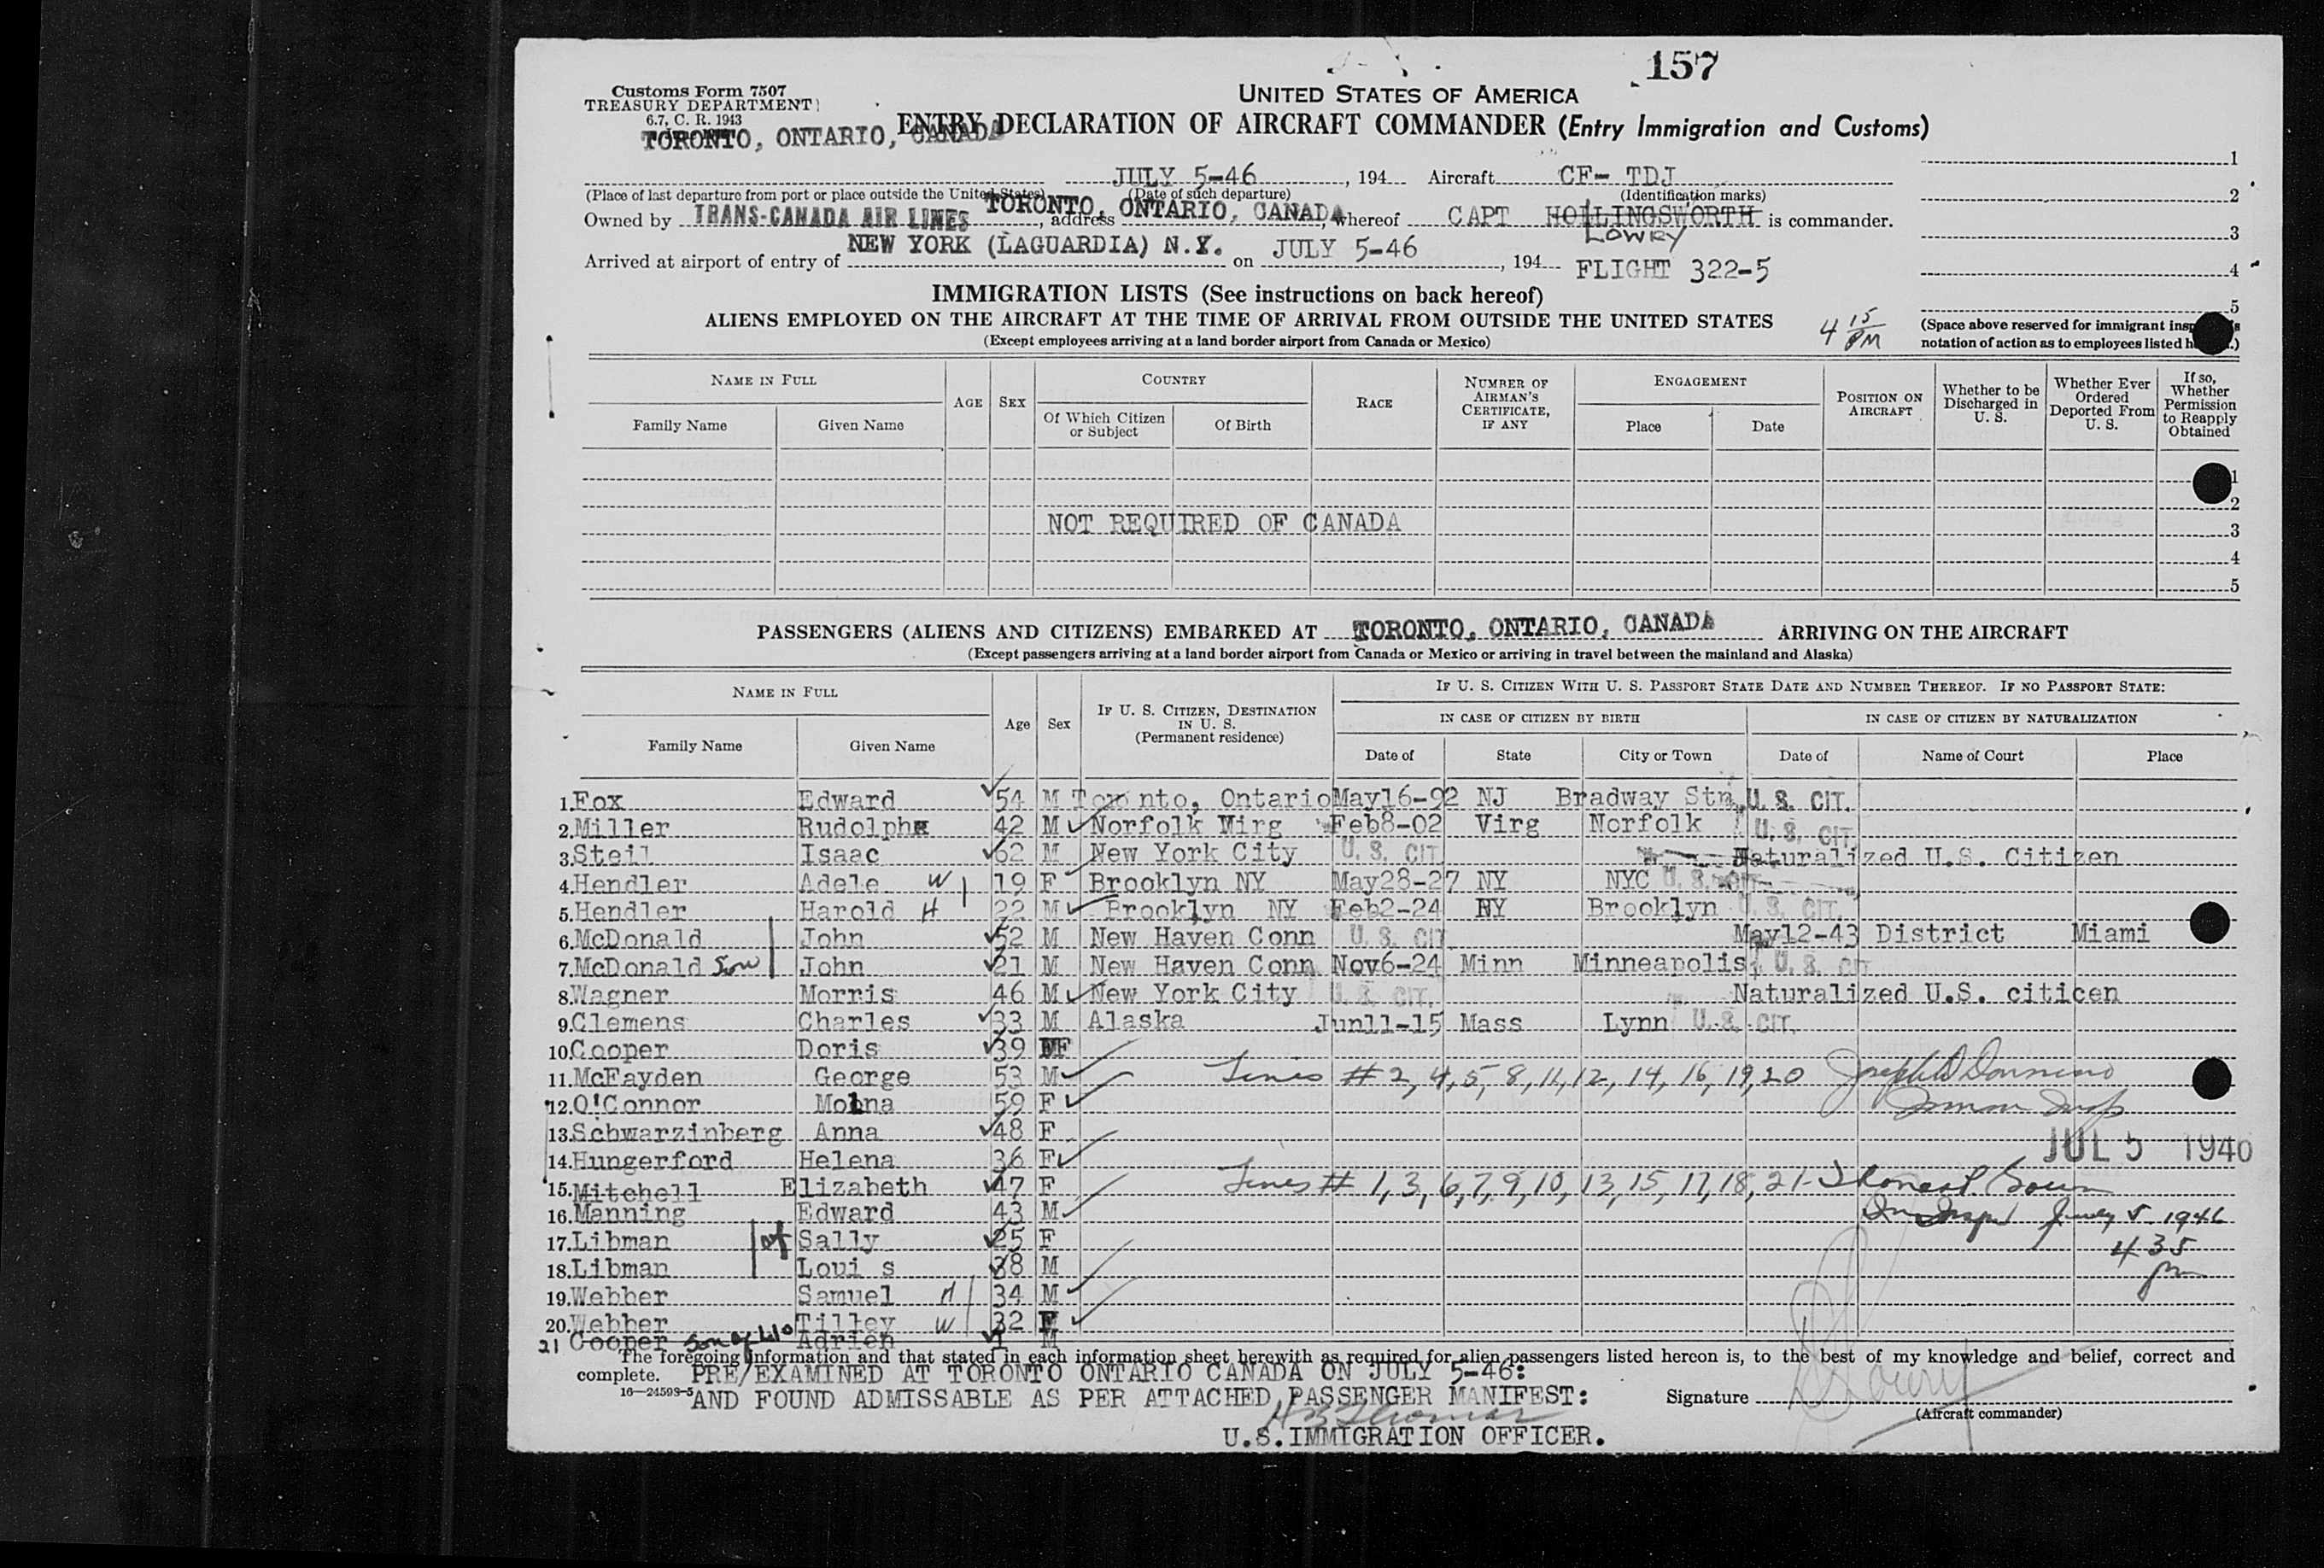 157
Customs Form 7507
TREASURY DEPARTMENT
6.7, C. R. 1943
UNITED STATES OF AMERICA
ENTRY DECLARATION OF AIRCRAFT COMMANDER (Entry Immigration and Customs)
TORONTO, ONTARIO, CANADA
1
JULY 5-46, 194 Aircraft CF- TDJ
(Place of last departure from port or place outside the United States) (Date of such departure) (Identification marks) 2
Owned by TRANS-CANADA AIR LINES, address TORONTO, ONTARIO, CANADA, whereof CAPT HOLLINGSWORTH is commander.
LOWRY 3
Arrived at airport of entry of NEW YORK (LAGUARDIA) N.Y. on JULY 5-46, 194 FLIGHT 322-5 4
IMMIGRATION LISTS (See instructions on back hereof)
5
ALIENS EMPLOYED ON THE AIRCRAFT AT THE TIME OF ARRIVAL FROM OUTSIDE THE UNITED STATES 4 15 PM
(Space above reserved for immigrant
(Except employees arriving at a land border airport from Canada or Mexico)
notation of action as to employees listed
NAME IN FULL AGE SEX COUNTRY RACE NUMBER OF AIRMAN'S CERTIFICATE, IF ANY ENGAGEMENT POSITION ON AIRCRAFT Whether to be Discharged in U. S. Whether Ever Ordered Deported From U. S. If so, Whether Permission to Reapply Obtained
Family Name Given Name Of Which Citizen or Subject Of Birth Place Date
1
2
NOT REQUIRED OF CANADA
3
4
5
PASSENGERS (ALIENS AND CITIZENS) EMBARKED AT TORONTO, ONTARIO, CANADA ARRIVING ON THE AIRCRAFT
(Except passengers arriving at a land border airport from Canada or Mexico or arriving in travel between the mainland and Alaska)
NAME IN FULL Age Sex IF U. S. CITIZEN, DESTINATION IN U. S. (Permanent residence) IF U. S. CITIZEN WITH U. S. PASSPORT STATE DATE AND NUMBER THEREOF. IF NO PASSPORT STATE:
IN CASE OF CITIZEN BY BIRTH IN CASE OF CITIZEN BY NATURALIZATION
Family Name Given Name Date of State City or Town Date of Name of Court Place
1. Fox Edward 54 M Toronto, Ontario May16-92 NJ Bradway Stn. U. S. CIT.
2. Miller Rudolph 42 M Norfolk Virg Feb8-02 Virg Norfolk U. S. CIT.
3. Steil Isaac 62 M New York City U. S. CIT. Naturalized U.S. Citizen
4. Hendler Adele W 19 F Brooklyn NY May28-27 NY NYC U. S. CIT.
5. Hendler Harold H 22 M Brooklyn NY Feb2-24 NY Brooklyn U. S. CIT.
6. McDonald John 52 M New Haven Conn U. S. CIT May12-43 District Miami
7. McDonald Son John 21 M New Haven Conn Nov6-24 Minn Minneapolis U. S. CIT
8. Wagner Morris 46 M New York City U. S. CIT. Naturalized U.S. citicen
9. Clemens Charles 33 M Alaska Jun11-15 Mass Lynn U. S. CIT.
10. Cooper Doris 39 F
11. McFayden George 53 M Lines # 2, 4, 5, 8, 11, 12, 14, 16, 19, 20
12. O'Connor Mona 59 F
13. Schwarzinberg Anna 48 F
JUL 5 1946
14. Hungerford Helena 36 F
15. Mitchell Elizabeth 47 F Lines # 1, 3, 6, 7, 9, 10, 13, 15, 17, 18, 21
16. Manning Edward 43 M July 5 1946
17. Libman Sally 25 F 4 35
18. Libman Loui s 38 M pm
19. Webber Samuel H 34 M
20. Webber Tilley W 32 F
21 Cooper son of L10 Adrien 1 M
The foregoing information and that stated in each information sheet herewith as required for alien passengers listed hereon is, to the best of my knowledge and belief, correct and
complete. PRE/EXAMINED AT TORONTO ONTARIO CANADA ON JULY 5-46:
16—24598-5 AND FOUND ADMISSABLE AS PER ATTACHED PASSENGER MANIFEST: Signature Lowry
(Aircraft commander)
U.S.IMMIGRATION OFFICER.